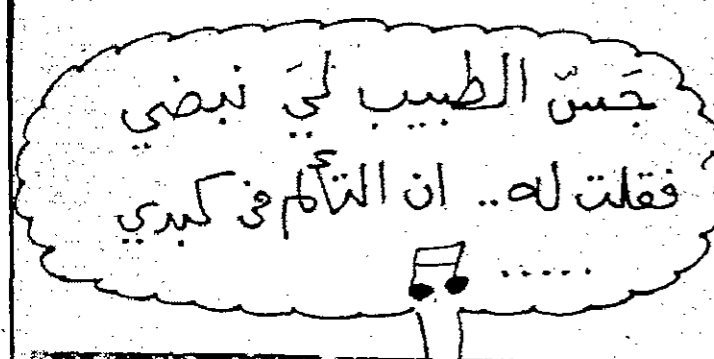 جَسّ الطبيب لَيَ نبضي
فقلت له.. ان التألم في كبدي
.....